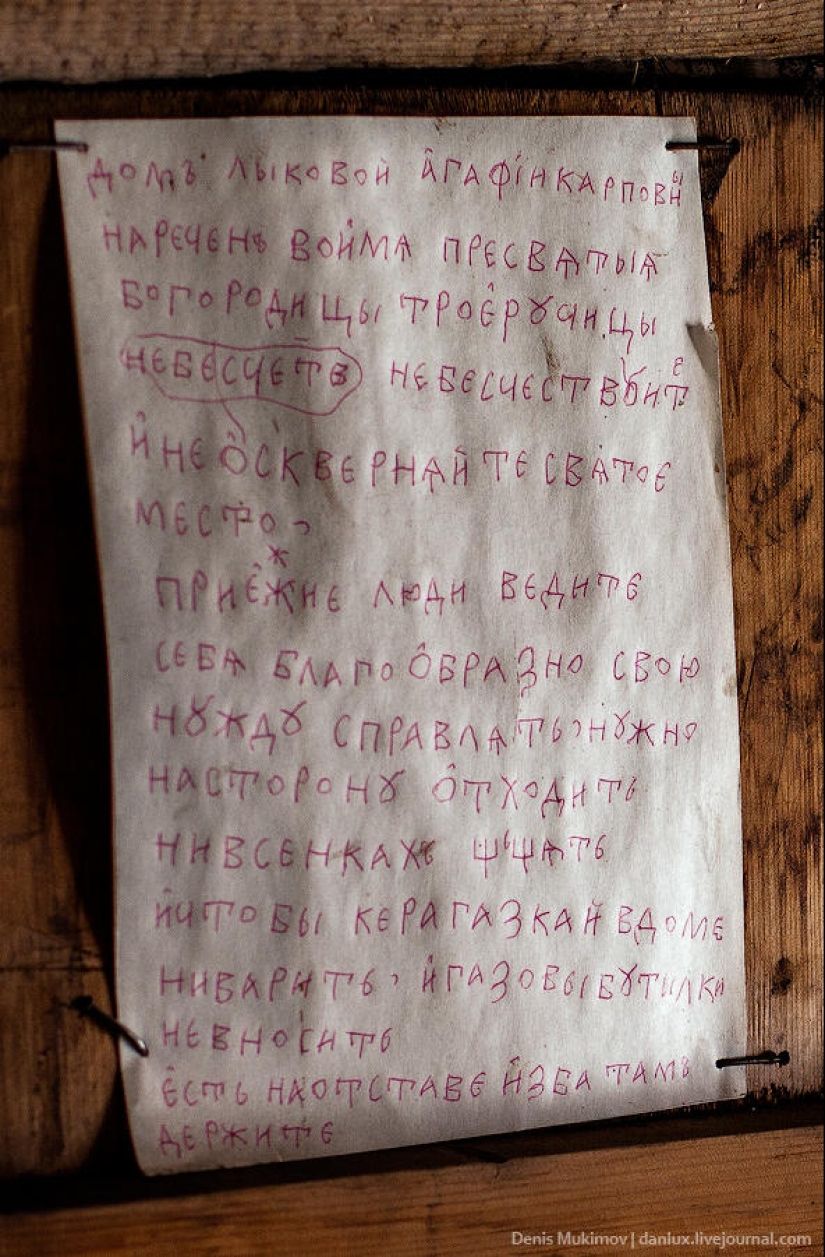 домъ лыковой а҆гафїи карповнꙑ
нареченъ во и҆мѧ пресвѧтыѧ
богородицы троє҆рꙋчицы
небесчетв небесчествꙋите
и҆ не ѻ҆сквернѧйте свѧтоє
место,
приє҆жжие люди ведите
себѧ благоѻ҆бразно свою
нꙋждꙋ справлѧть, нꙋжно
насторонꙋ ѻ҆тходить
нивсенкахъ
и҆чтобы керагазкай вдоме
ниварить, и҆ газовыбꙋтилки
невносить
є҆сть наотставе и҆зба тамъ
держите
Denis Mukimov | danlux.livejournal.com